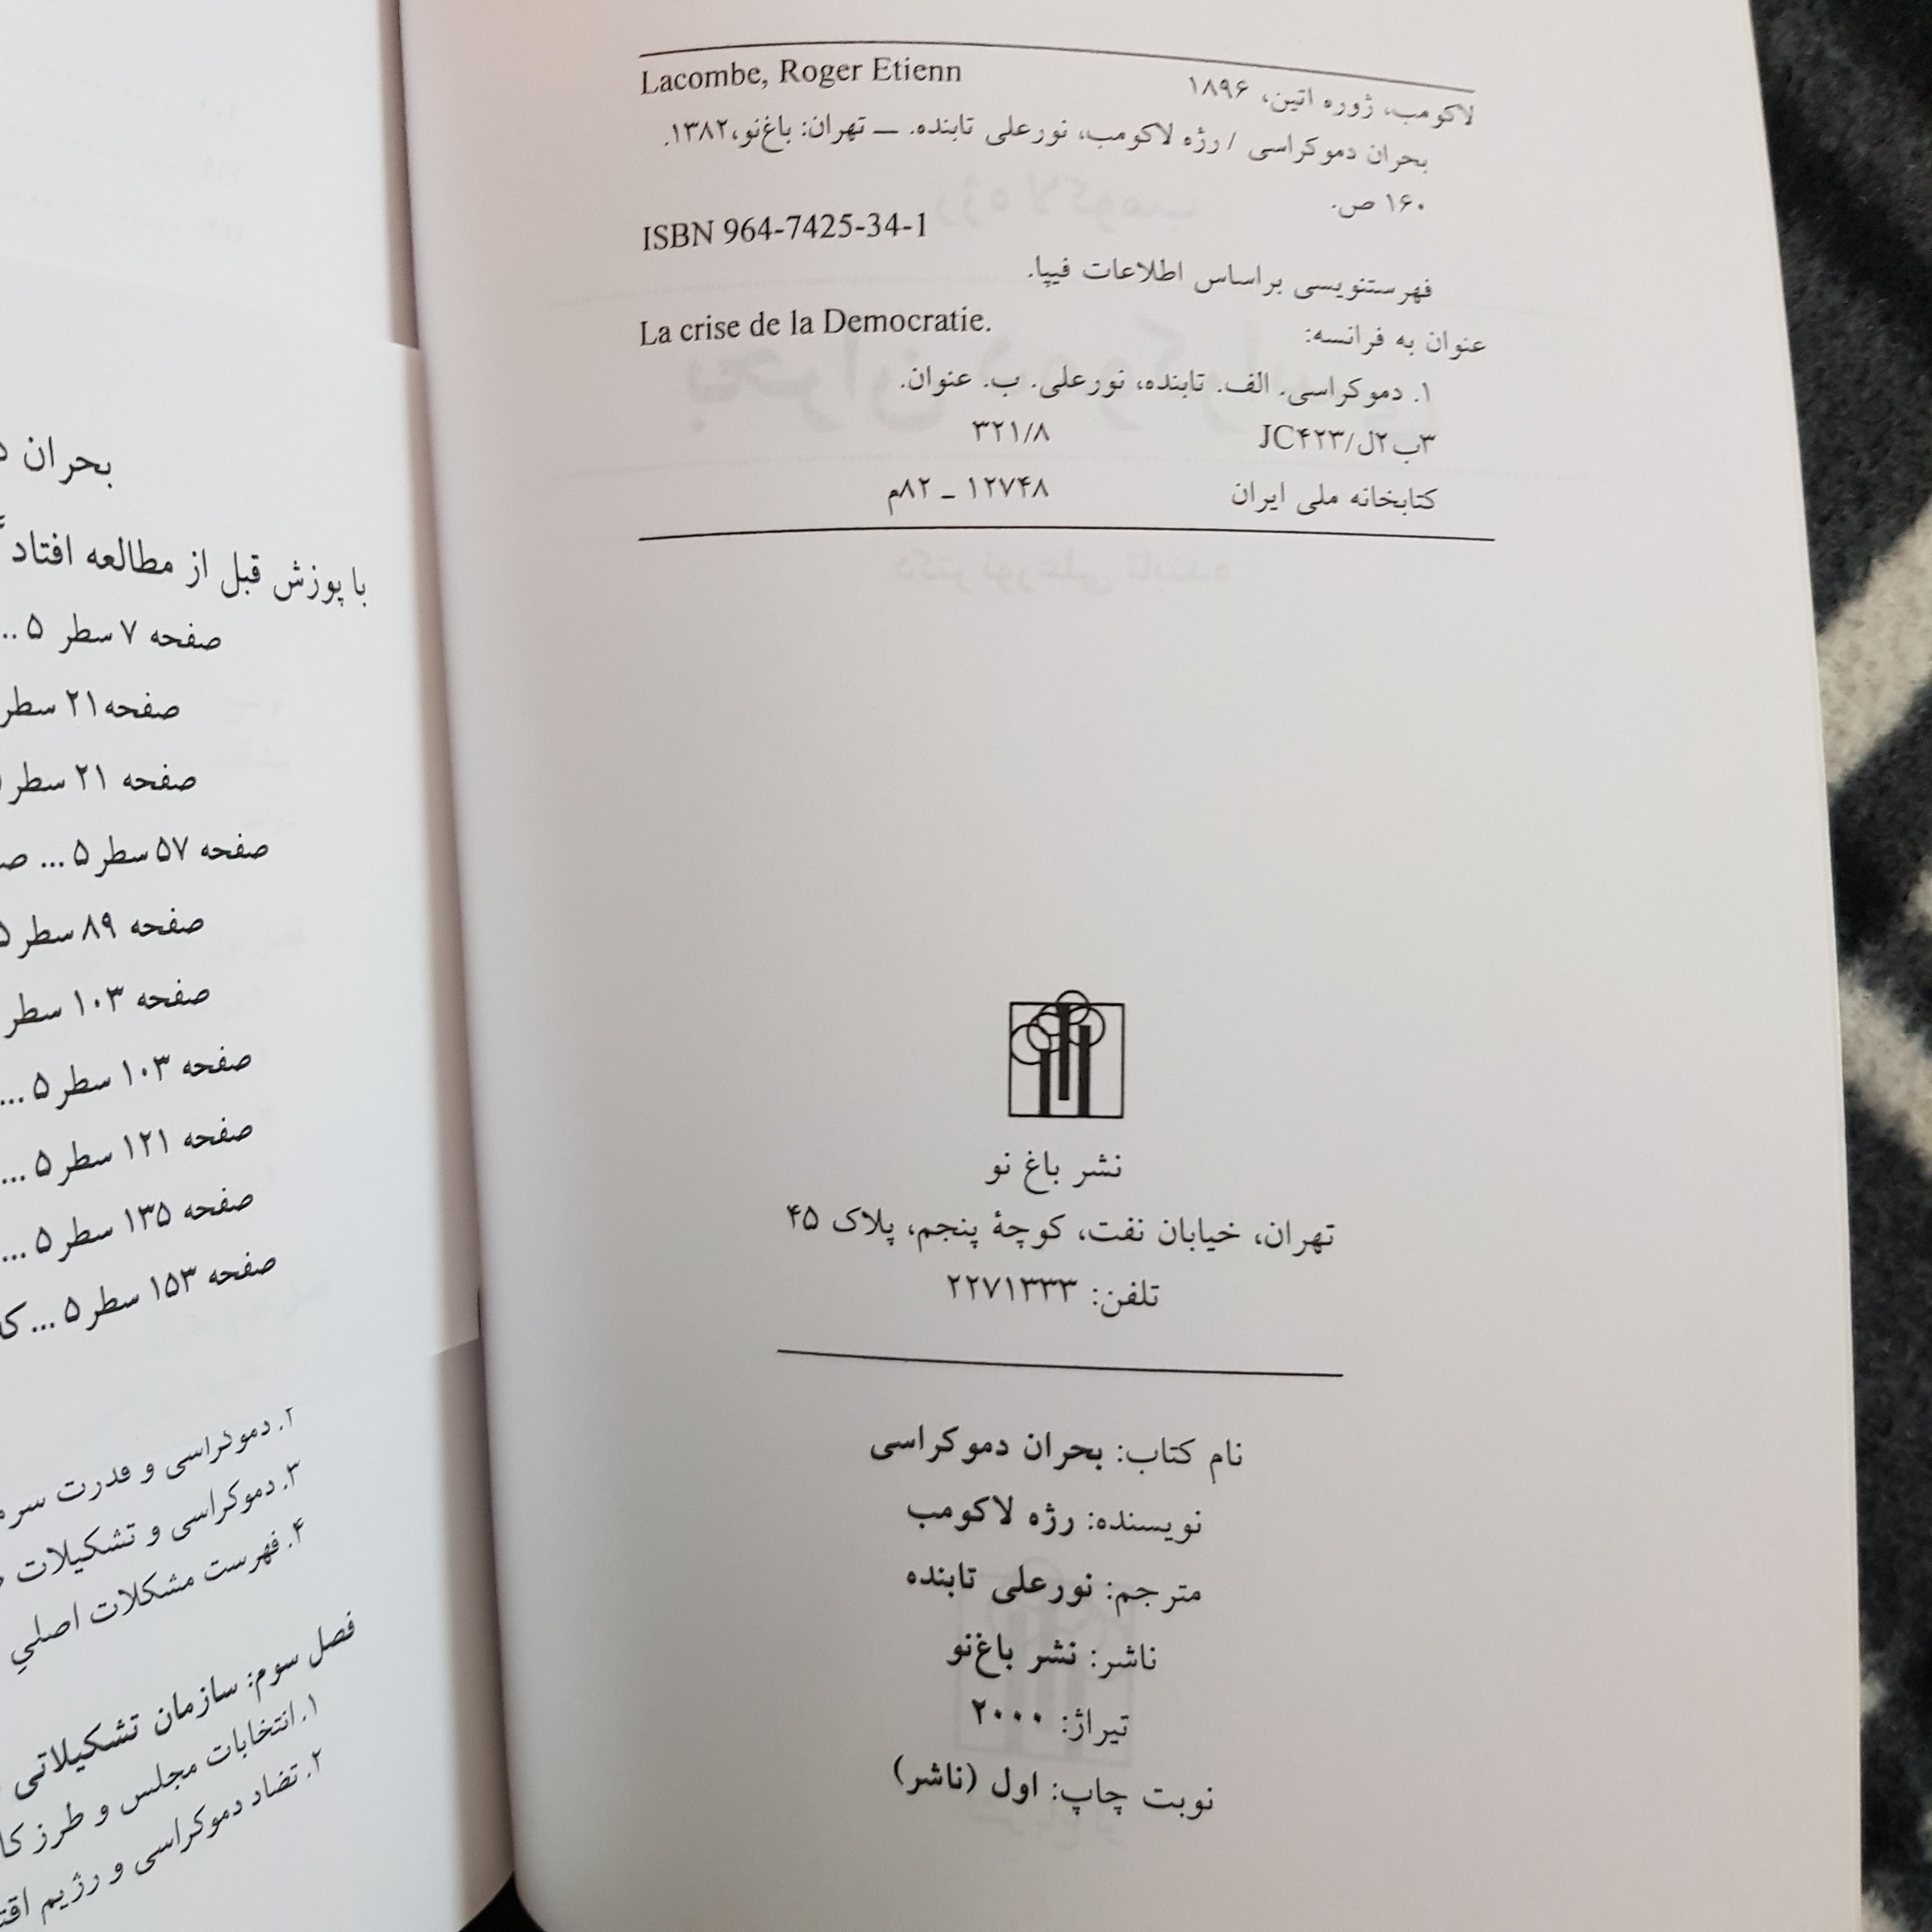 Lacombe, Roger Etienn
لاکومب، ژوره اتین، ۱۸۹۶
بحران دموکراسی / رژه لاکومب، نورعلی تابنده. ـــ تهران: باغ‌نو،۱۳۸۲.
۱۶۰ ص.
ISBN 964-7425-34-1
فهرستنویسی براساس اطلاعات فیپا.
عنوان به فرانسه: La crise de la Democratie.
۱. دموکراسی. الف. تابنده، نورعلی. ب. عنوان.
۳ب۲ل/JC۴۲۳ ۳۲۱/۸
کتابخانه ملی ایران ۱۲۷۴۸ ـ ۸۲م
نشر باغ نو
تهران، خیابان نفت، کوچهٔ پنجم، پلاک ۴۵
تلفن: ۲۲۷۱۳۳۳
نام کتاب: بحران دموکراسی
نویسنده: رژه لاکومب
مترجم: نورعلی تابنده
ناشر: نشر باغ‌نو
تیراژ: ۲۰۰۰
نوبت چاپ: اول (ناشر)
بحران
با پوزش قبل از مطالعه افتاد
صفحه ۷ سطر ۵ ..
صفحه۲۱ سطر
صفحه ۲۱ سطر
صفحه ۵۷ سطر ۵ ...
صفحه ۸۹ سطر ۵
صفحه ۱۰۳ سطر
صفحه ۱۰۳ سطر ۵ ...
صفحه ۱۲۱ سطر ۵ ...
صفحه ۱۳۵ سطر ۵ ...
صفحه ۱۵۳ سطر ۵ ...
۲. دموکراسی و قدرت
۳. دموکراسی و تشکیلات
۴. فهرست مشکلات اصلیِ
فصل سوم: سازمان تشکیلاتی
۱. انتخابات مجلس و طرز
۲. تضاد دموکراسی و رژیم